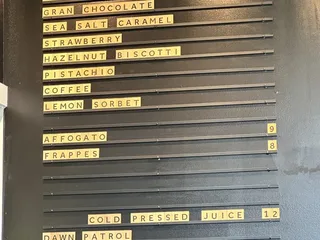 GRAN CHOCOLATE
SEA SALT CARAMEL
STRAWBERRY
HAZELNUT BISCOTTI
PISTACHIO
COFFEE
LEMON SORBET
AFFOGATO 9
FRAPPES 8
COLD PRESSED JUICE 12
DAWN PATROL